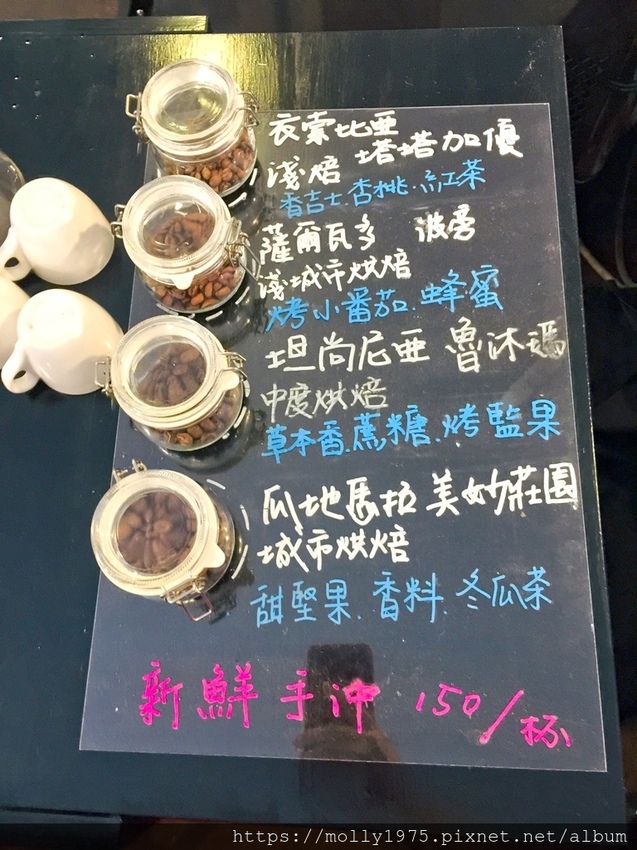 衣索比亞
淺焙 塔塔加優
香吉士.杏桃.紅茶
薩爾瓦多 波旁
淺城市烘焙
烤小番茄.蜂蜜
坦尚尼亞 魯沐瑪
中度烘焙
草本香.蔗糖.烤監果
瓜地馬拉 美妙莊園
城市烘焙
甜堅果.香料.冬瓜茶
新鮮手沖 150/杯
https://molly1975.pixnet.net/album